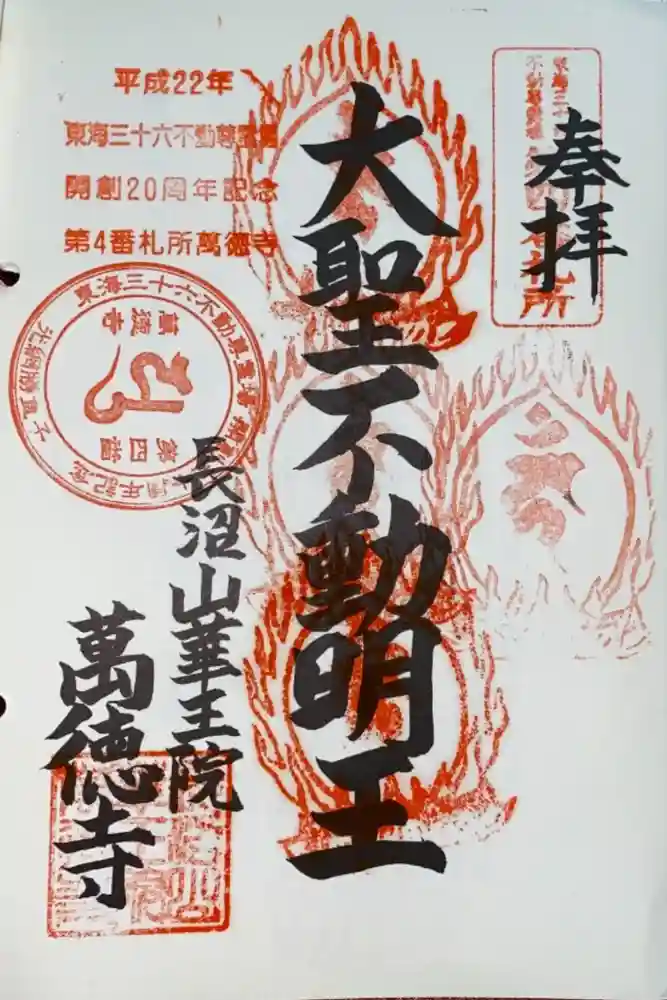 奉拝
大聖不動明王
長沼山華王院
萬徳寺
平成22年
東海三十六不動尊霊場
開創20周年記念
第4番札所萬徳寺
東海三十六不動尊霊場
萬徳寺
第四番
札所